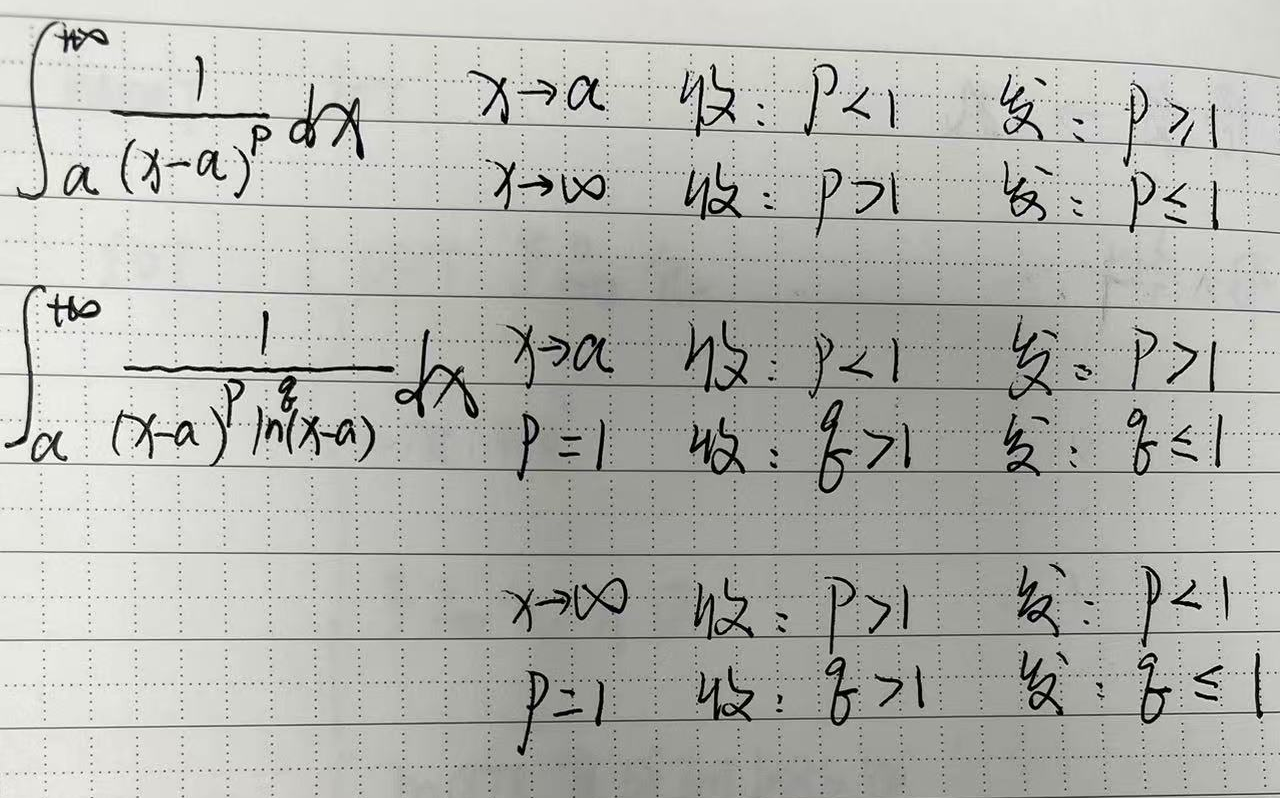 ∫_a^{+∞} 1/(x-a)^p dx x→a 收: p<1 发: p≥1
x→∞ 收: p>1 发: p≤1
∫_a^{+∞} 1/((x-a)^p ln^q(x-a)) dx x→a 收: p<1 发: p>1
p=1 收: q>1 发: q≤1
x→∞ 收: p>1 发: p<1
p=1 收: q>1 发: q≤1